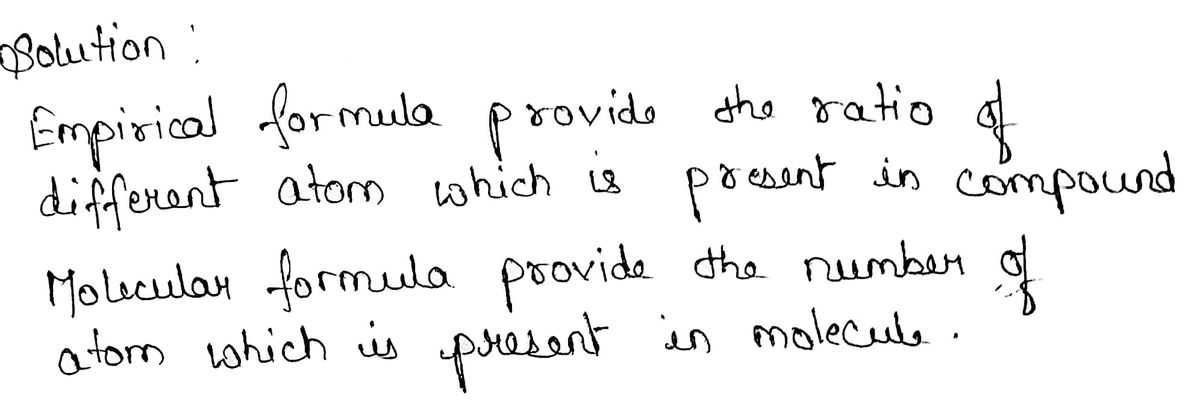 Solution :
Empirical formula provide the ratio of
different atom which is present in compound
Molecular formula provide the number of
atom which is present in molecule.